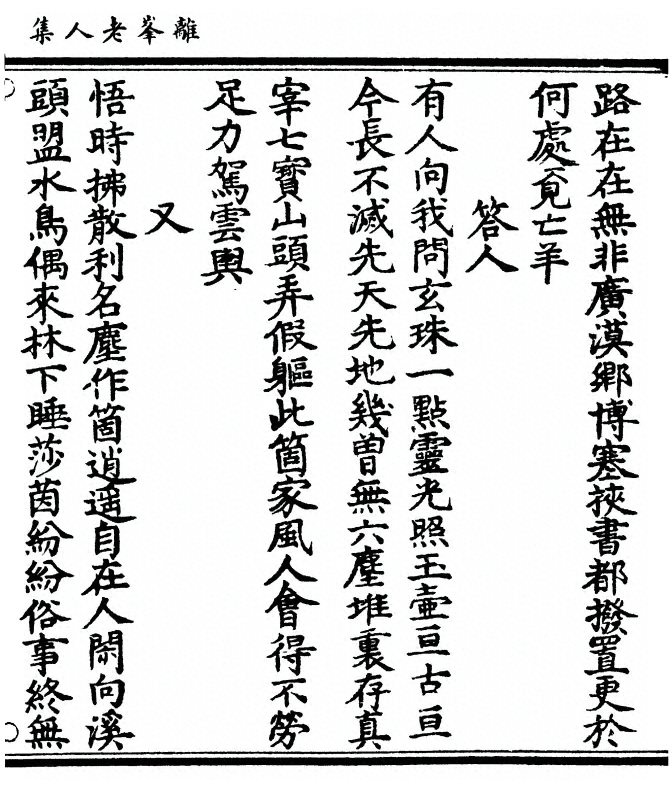 離峯老人集
路在在無非廣漠鄉博塞挾書都撥置更於
何處覓亡羊
答人
有人向我問玄珠一點靈光照玉壺亘古亘
今長不滅先天先地幾曾無六塵堆裏存真
宰七寶山頭弄假軀此箇家風人會得不勞
足力駕雲輿
又
悟時拂散利名塵作箇逍遥自在人閑向溪
頭盟水鳥偶來林下睡莎茵紛紛俗事終無